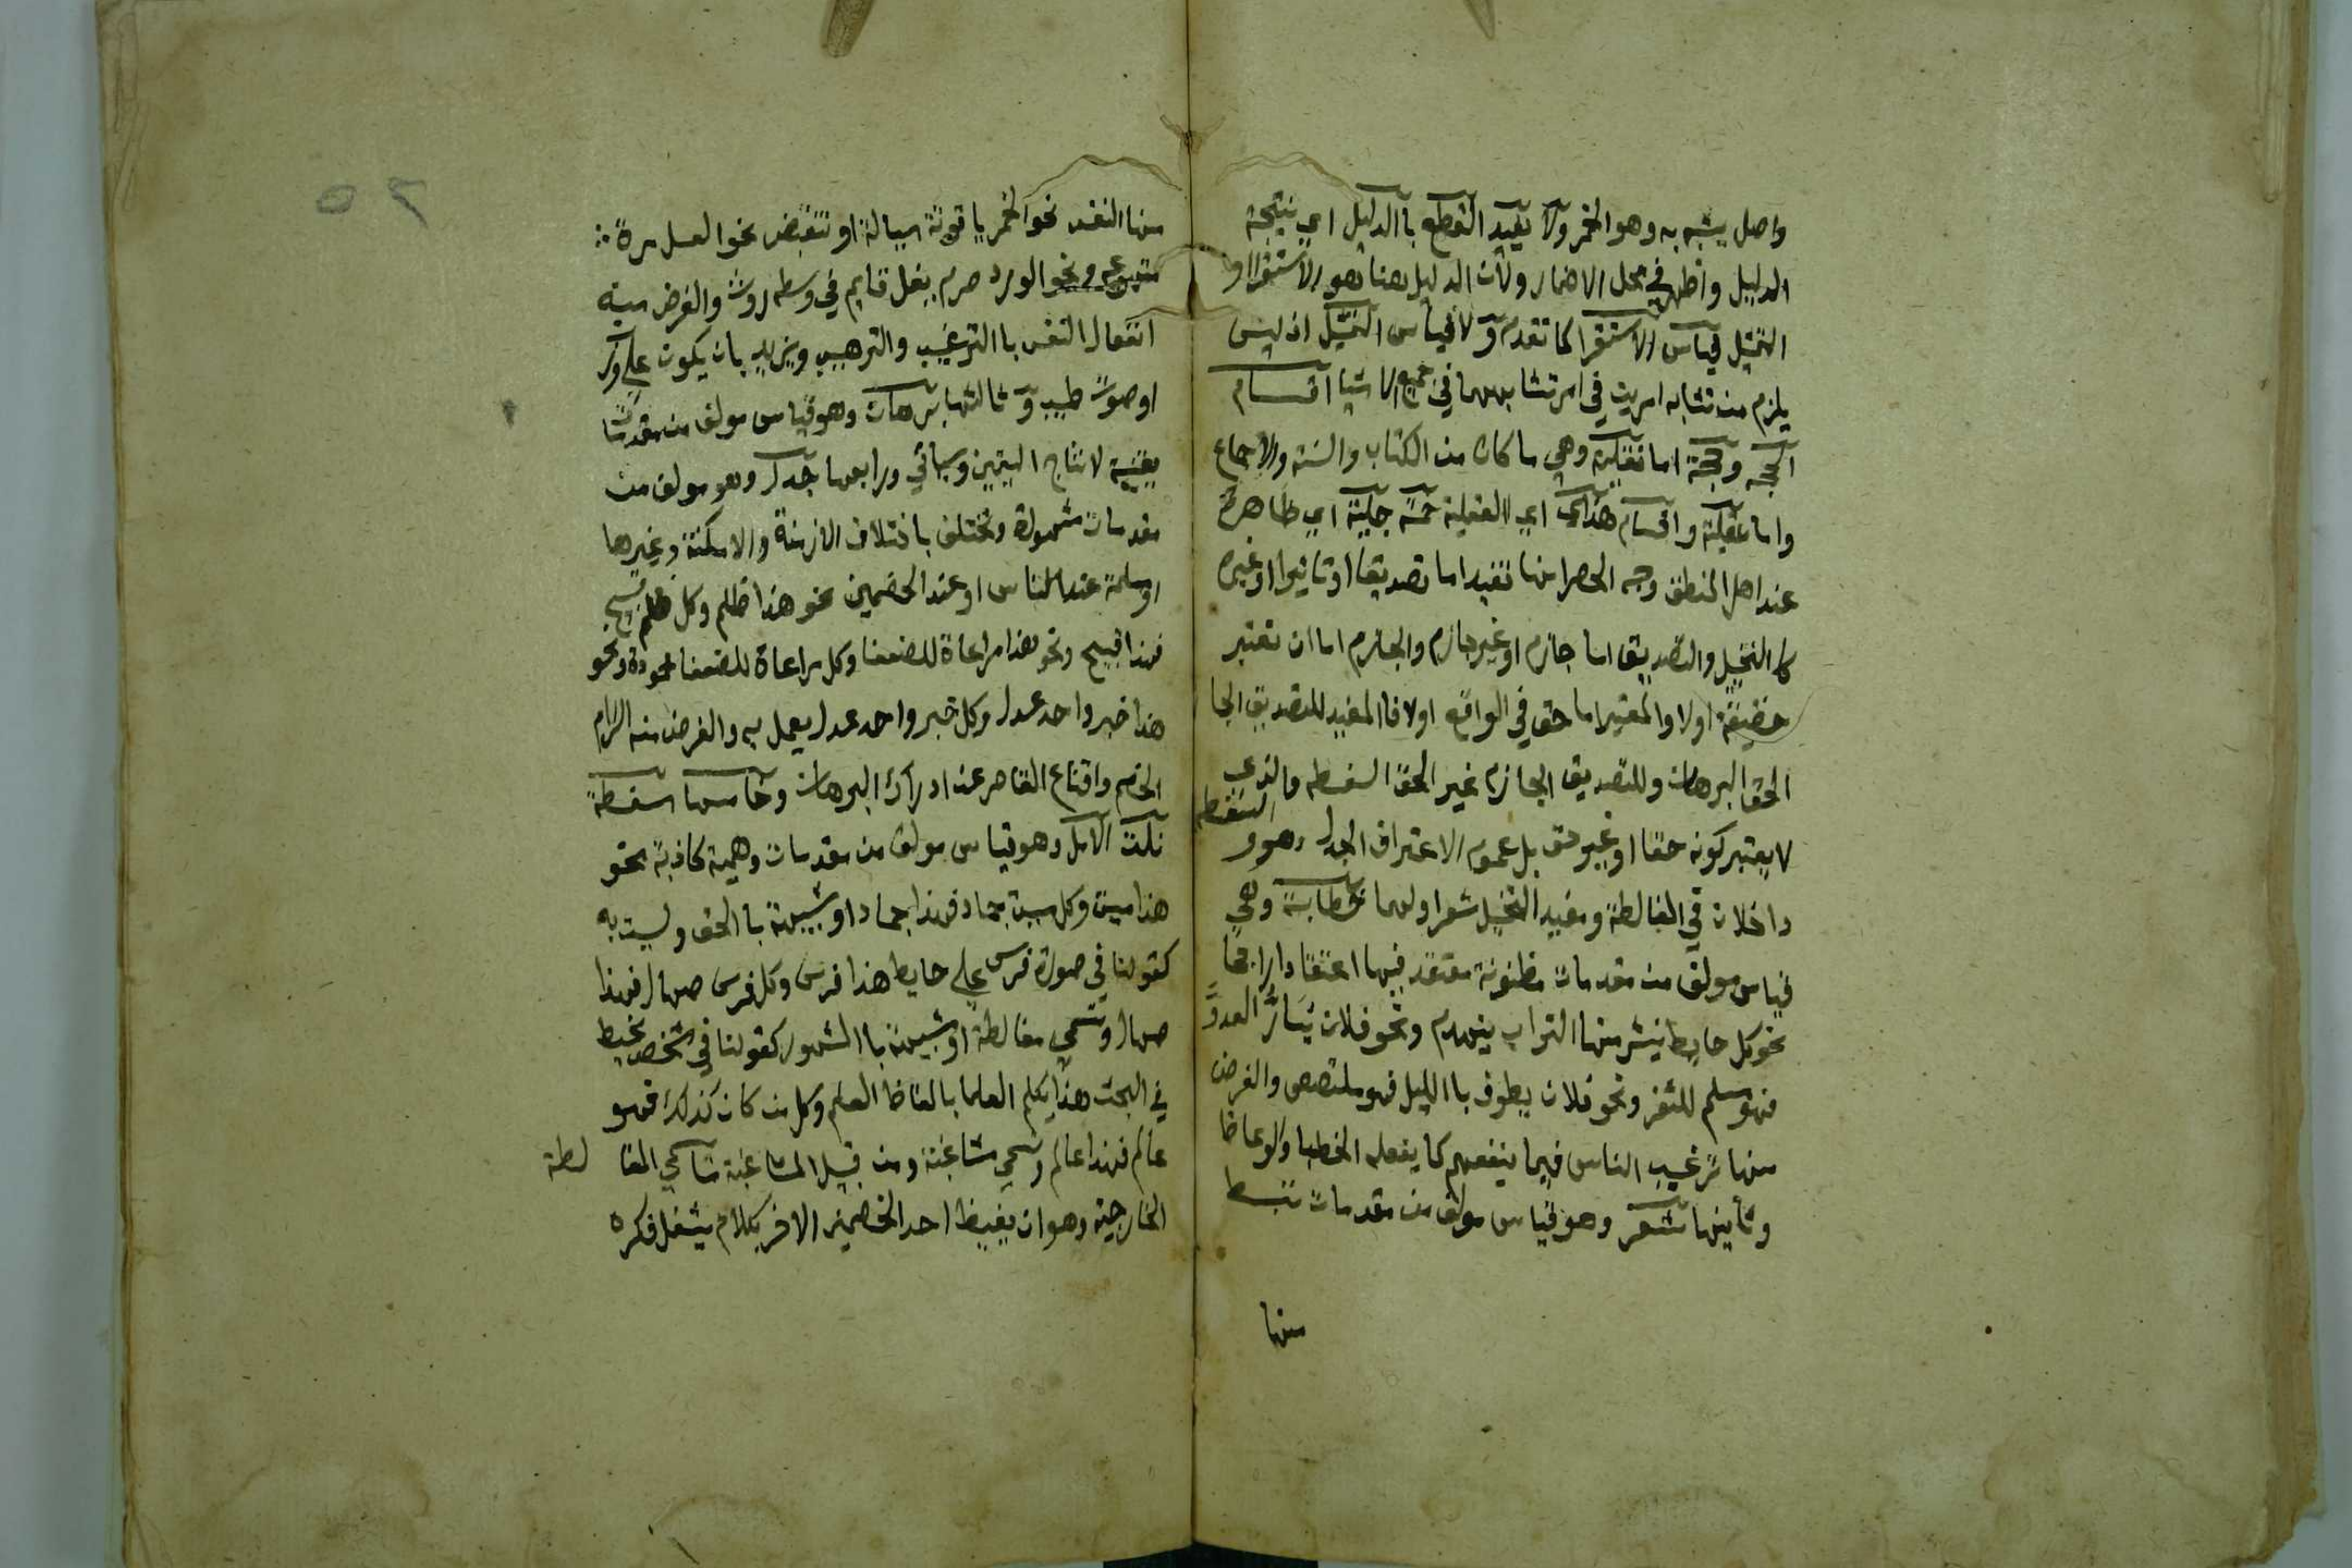 واصل يشبه به وهو الخمر ولا يفيد القطع بالدليل اي نتيجة
الدليل واظهر في محل الاضمار ولان الدليل هنا هو الاستقرا او
التمثيل قياس الاستقرا كما تقدم ولا قياس التمثيل اذ ليس
يلزم من تشابه امرين في امر تشابههما في جميع الاشيا اقسام
الحجه وحجة اما نقلية وهي ما كان من الكتاب والسنة والاجماع
واما عقلية واقسام هذه اي العقلية خمسة جلية اي ظاهرة
عند اهل المنطق وجه الحصر انها تفيد اما تصديقا او تاثيرا او غيره
كالتخيل والتصديق اما جازم او غير جازم والجازم اما ان تعتبر
حقيقته اولا والمعتبر اما حق في الواقع اولا فالمفيد للتصديق الجا
الحق البرهان وللتصديق الجازم غير الحق السفسطه والذي
لا يعتبر كونه حقا او غير حق بل عموم الاعتراف الجدل وهو و السفسطه
داخلان في المغالطة ومفيد التخيل شعر اولها خطابة وهي
قياس مولف من مقدمات مظنونة معتقد فيها اعتقادا راجحا
نحو كل حايط ينتثر منها التراب ينهدم ونحو فلان يسار العدو
فهو مسلم للثغر ونحو فلان يطوف باالليل فهو متلصص والغرض
منها ترغيب الناس فيما ينفعهم كما يفعله الخطبا والوعاظ
وثانيها شعر وهو قياس مولف من مقدمات تنبسط
منها
٥٢
منها النفس نحو الخمر ياقوتة سيالة او تنقبض نحو العسل مرة
متهوعه ونحو الورد صرم بغل قايم في وسطه روث والغرض منه
انفعال النفس باالترغيب والترهيب ويزيد بان يكون علي وزن
او صوت طيب وثالثها برهان وهو قياس مولف من مقدمات
يقينية لانتاج اليقين وسياتي ورابعها جدل وهو مولف من
مقدمات مشهورة وتختلف باختلاف الازمنة والامكنة وغيرها
او مسلمة عند الناس او عند الخصمين نحو هذا ظلم وكل ظلم قبيح
فهذا قبيح ونحو هذا مراعاة للضعفا وكل مراعاة للضعفا محمودة ونحو
هذا خبر واحد عدل وكل خبر واحد عدل يعمل به والغرض منه الزام
الخصم واقناع القاصر عند ادراك البرهان وخامسها سفسطة
نلت الامل وهو قياس مولف من مقدمات وهمية كاذبة نحو
هذا ميت وكل ميت جماد فهذا جماد او شبيهة باالحق وليست به
كقولنا في صورة فرس علي حايط هذا فرس وكل فرس صهال فهذا
صهال وتسمي مغالطة او شبيهة باالمشهور كقولنا في شخص يخبط
في البحث هذا يكلم العلما بالفاظ العلم وكل من كان كذلك فهو
عالم فهذا عالم وتسمي مشاغبة ومن قبيل المشاغبة تسمي المغا لطة
الخارجية وهو ان يغيظ احد الخصمين الاخر بكلام يشغل فكره